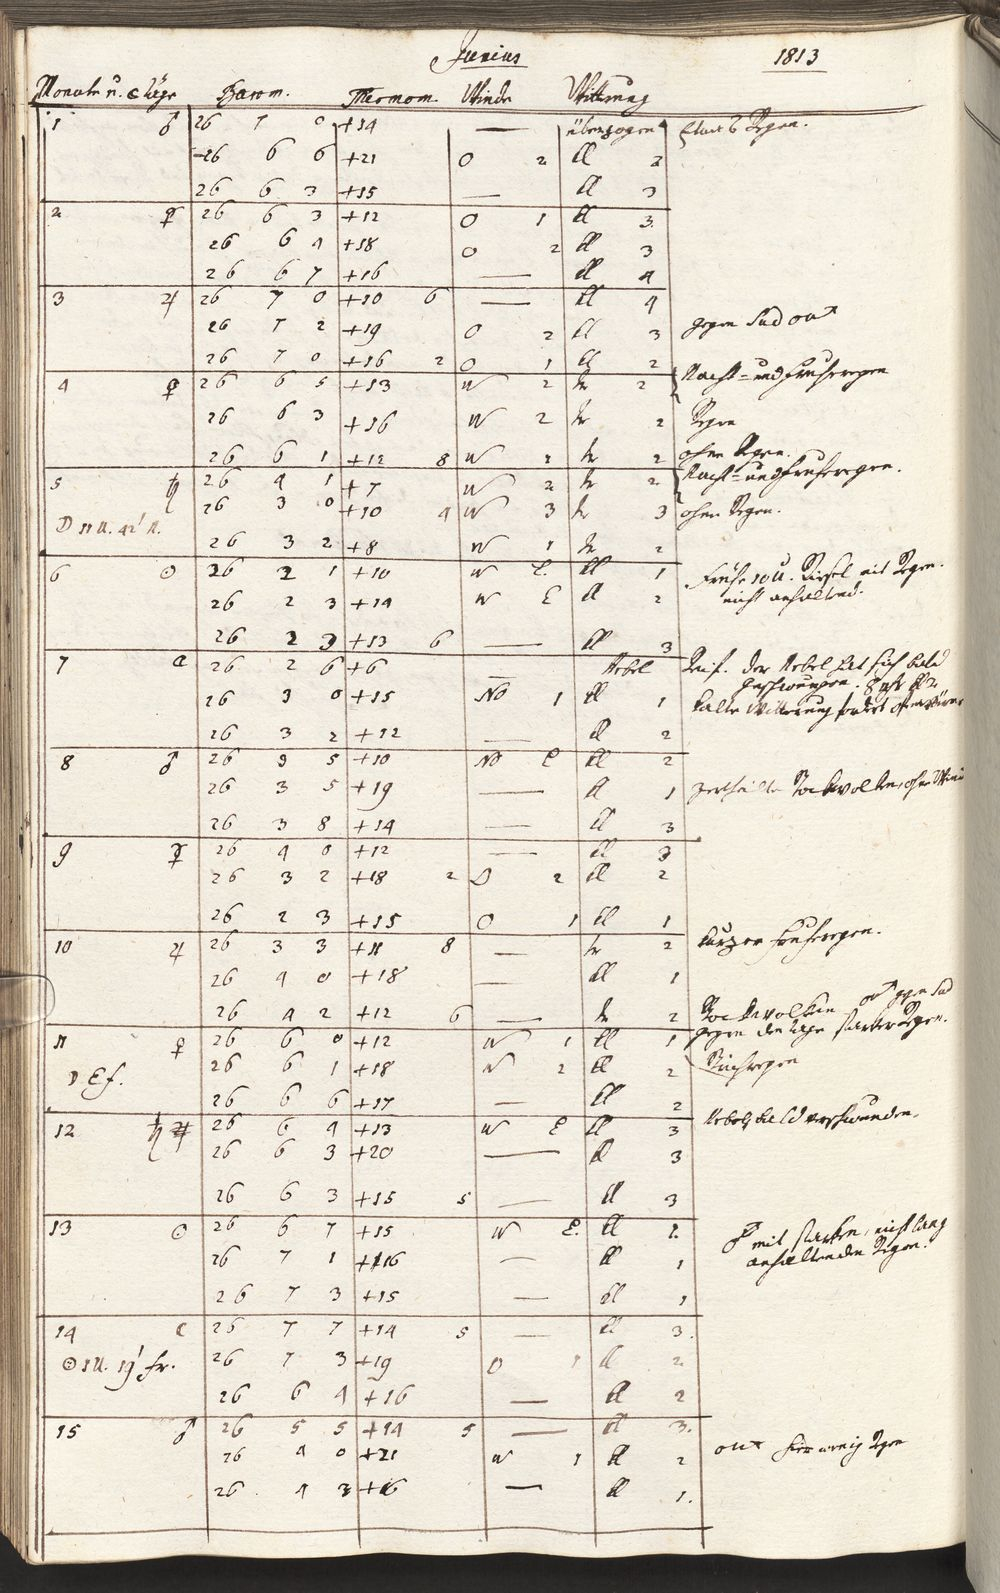 Junius 1813
Monats u. Täge Barom. Thermom. Winde Witterung
1 ♂ 26 7 0 +14 — überzogen etwas Regen.
26 6 6 +21 O 2 ll 2
26 6 3 +15 — ll 3
2 ☿ 26 6 3 +12 O 1 ll 3.
26 6 4 +18 O 2 ll 3
26 6 7 +16 — ll 4
3 ♃ 26 7 0 +10 6 — ll 4
26 7 2 +19 O 2 ll 3 gegen Süd
26 7 0 +16 2 O 1 ll 2
4 ♀ 26 6 5 +13 W 2 tr 2 Nacht- und Frühregen
26 6 3 +16 W 2 tr 2 Regen
26 6 1 +12 8 W 2 tr 2 ohne Regen.
5 ♄ 26 4 1 +7 W 2 tr 2 Nacht- und Frühregen.
26 3 0 +10 4 W 3 tr 3 ohne Regen.
☽ 11 U. 42' A.
26 3 2 +8 W 1 tr 2
6 ☉ 26 2 1 +10 W E. ll 1 Frühe 10 U. Riesel mit Regen.
26 2 3 +14 W E ll 2 nicht anhaltend.
26 2 3 +13 6 — ll 3
7 ☾ 26 2 6 +6 — Nebel Reif. der Nebel hat sich bald
26 3 0 +15 NO 1 ll 1 kalte Witterung
26 3 2 +12 — ll 2
8 ♂ 26 3 5 +10 NO E ll 2
26 3 5 +19 — ll 1 zertheilte Bockwolken, ohne Wind
26 3 8 +14 — ll 3
9 ☿ 26 4 0 +12 — ll 3
26 3 2 +18 2 O 2 ll 2
26 2 3 +15 O 1 ll 1
10 ♃ 26 3 3 +11 8 — tr 2 kurzer Frühregen.
26 4 0 +18 — ll 1
26 4 2 +12 6 — tr 2 Bockwolken gegen Süd
gegen den starker Regen.
11 ♀ 26 6 0 +12 W 1 ll 1
26 6 1 +18 W 2 ll 2 Strichregen
☽ Ef.
26 6 6 +17 — ll 2
12 ♄ 26 6 4 +13 W E ll 3 Nebel, bald verschwunden.
26 6 3 +20 — ll 3
26 6 3 +15 5 — ll 3
13 ☉ 26 6 7 +15 W E. ll 1. mit starken, nicht lang
26 7 1 +16 — ll 1 anhaltenden Regen.
26 7 3 +15 — ll 1
14 ☾ 26 7 7 +14 5 — ll 3.
☉ 1 U. 19' fr. 26 7 3 +19 O 1 ll 2
26 6 4 +16 — ll 2
15 ♂ 26 5 5 +14 5 — ll 3.
26 4 0 +21 W 1 ll 2 hier wenig Regen
26 4 3 +16 — ll 1.